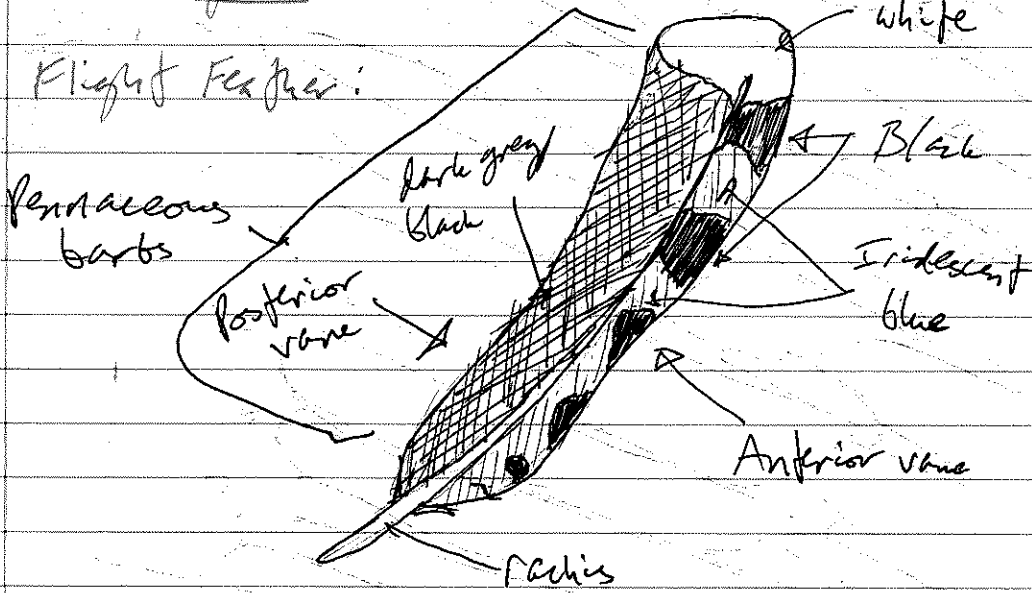 white
Flight Feather:
Black
Dark grey
black
Pennaceous
barbs
Iridescent
blue
Posterior
vane
Anterior vane
rachis